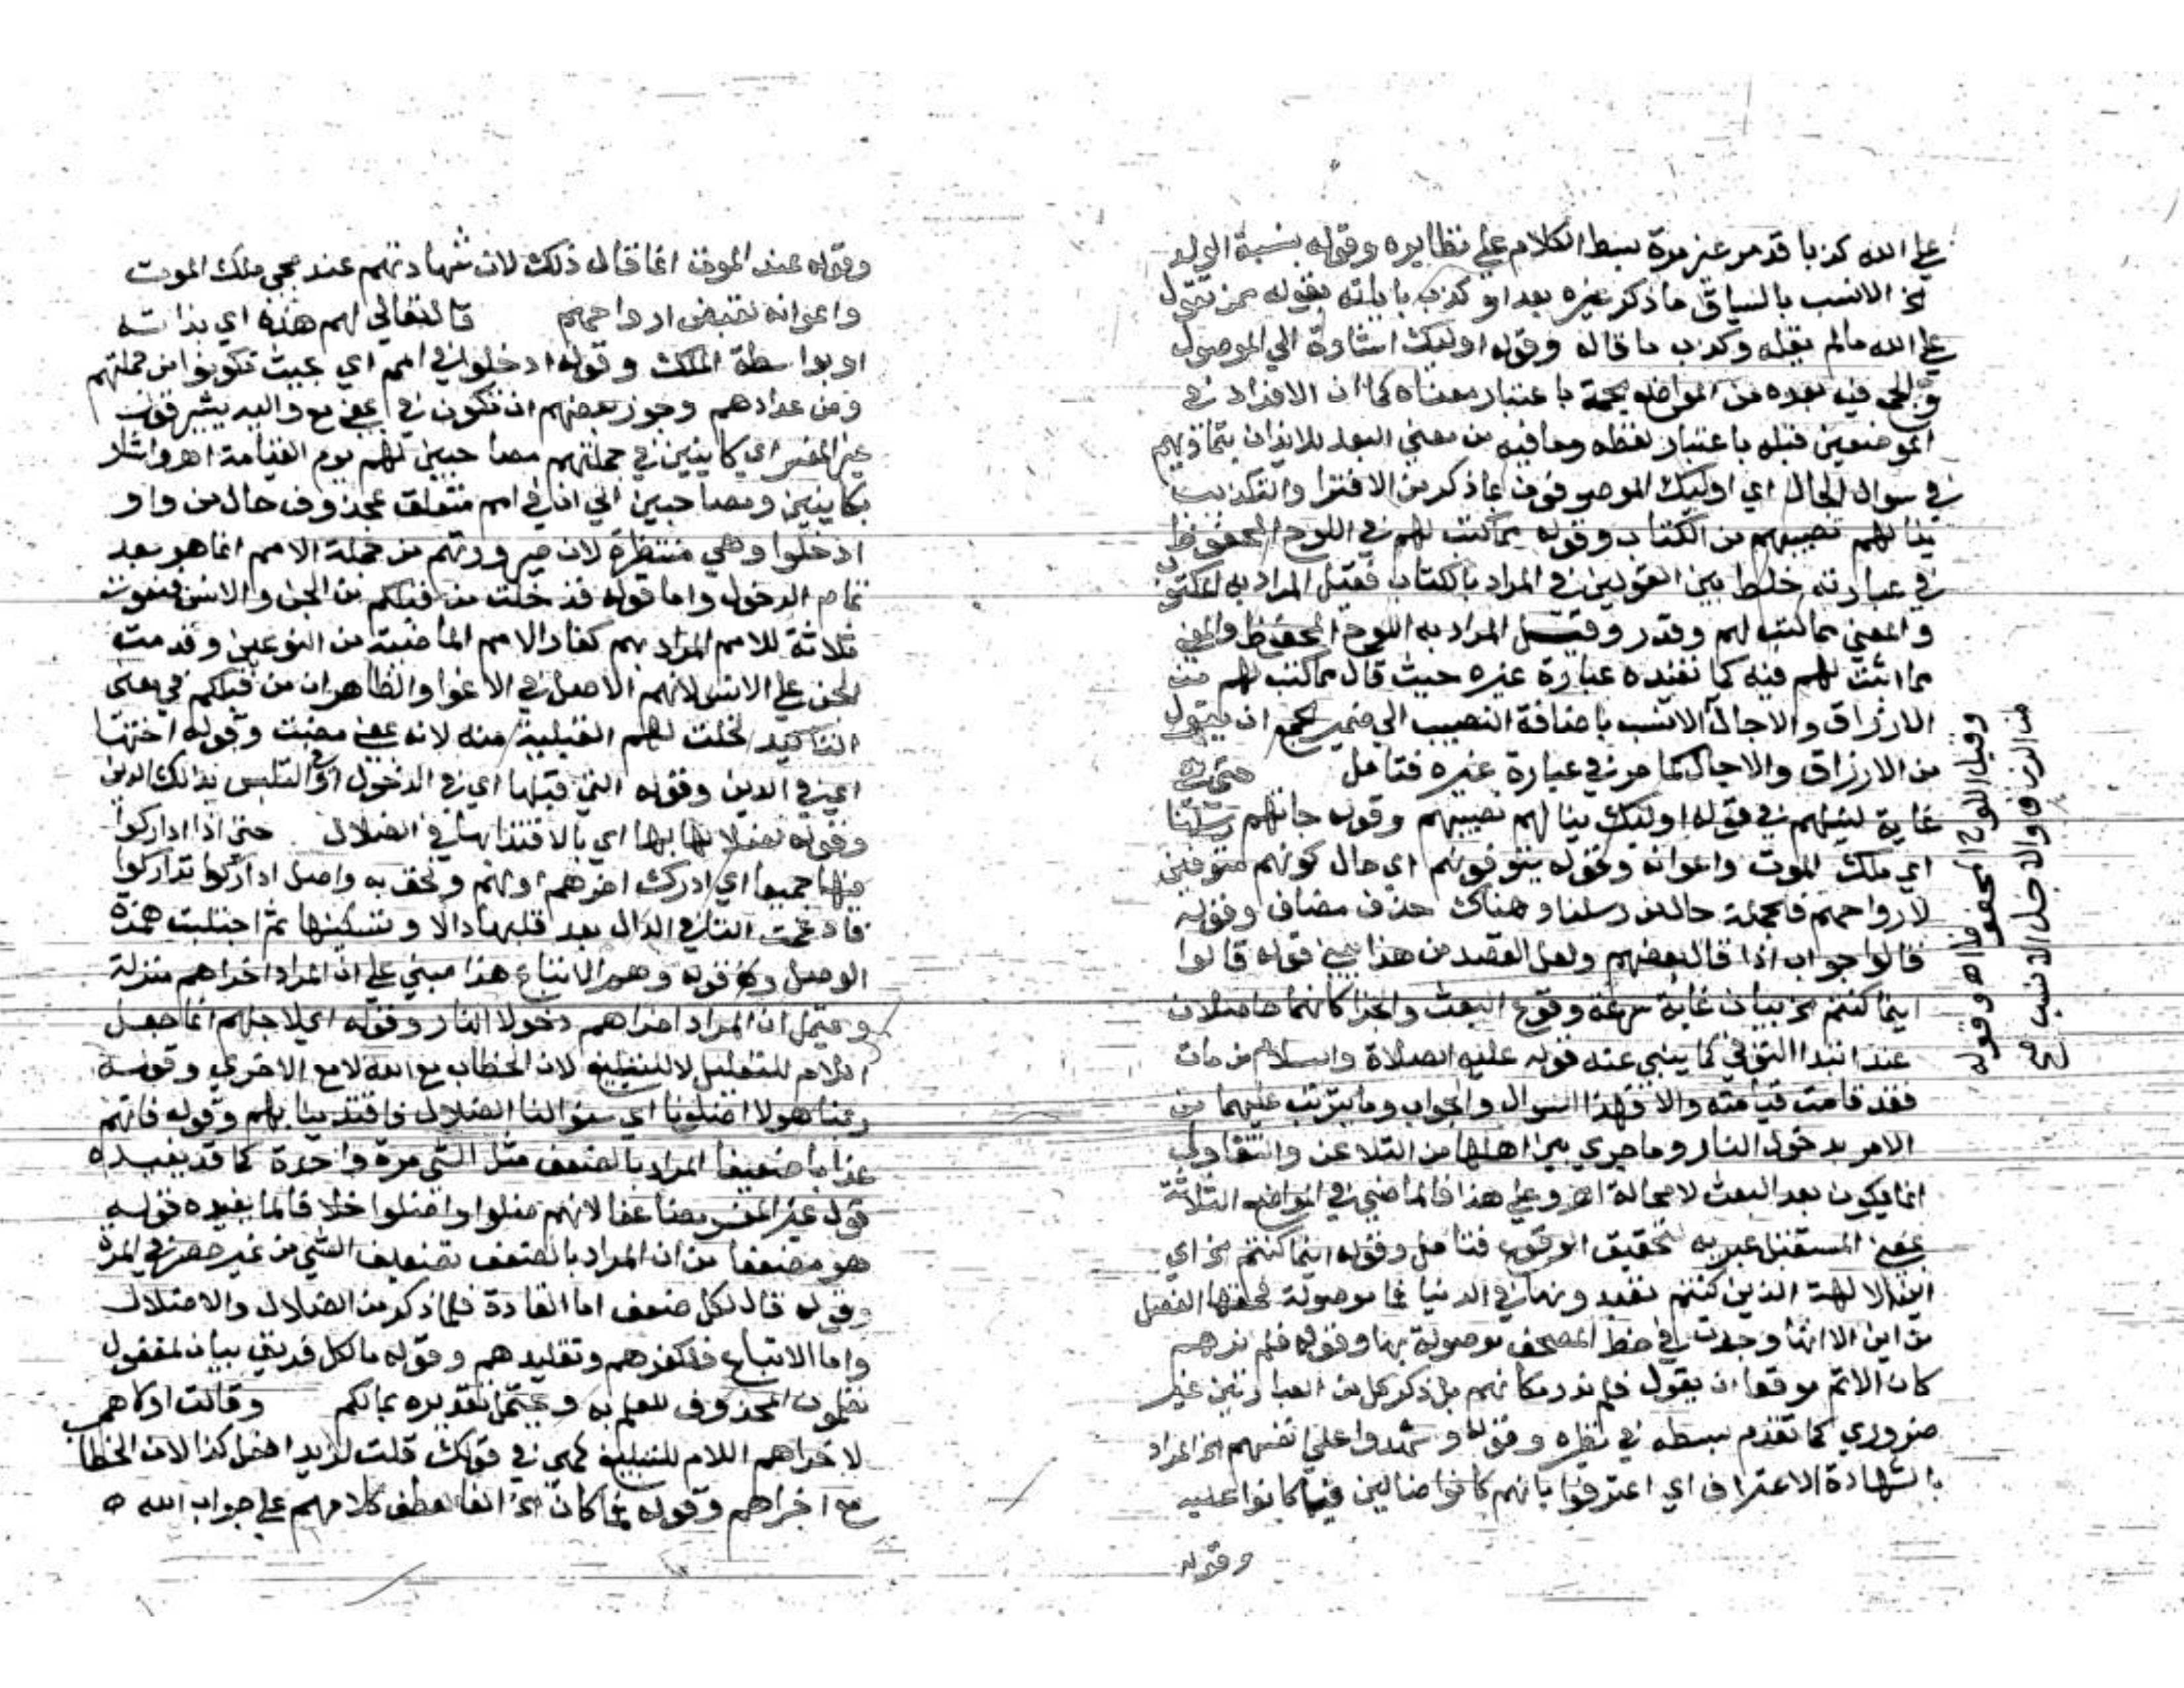 على الله كذبا قد مر غير مرة بسط الكلام على نظايره وقوله بنسبة الولد
الخ الانسب بالسياق ما ذكر غيره بعد او كذب باياته بقوله ممن تقول
على الله ما لم يقله وكذب ما قاله وقوله اوليك اشارة الى الموصول
والجمع فيه بعده من المواضع باعتبار معناه كما ان الافراد في
الموضعين قبله باعتبار لفظه وما فيه من معنى البعد للايذان بتماديهم
في سوال الحال اي اوليك الموصوفون بما ذكر من الافترا والتكذيب
ينالهم نصيبهم من الكتاب وقوله مما كتب لهم في اللوح المحفوظ
في عبارته خلط بين القولين في المراد بالكتاب فقيل المراد به المكتوب
والمعنى مما كتب لهم وقدر وقيل المراد به اللوح المحفوظ والمعنى
مما اثبت لهم فيه كما تفيده عبارة غيره حيث قال مما كتب لهم من
الارزاق والاجال الانسب باضافة النصيب الى ضمير الجمع ان يقول
من الارزاق والاجال كما مر في عبارة غيره فتامل حتى
غاية لنيلهم في قوله اوليك ينالهم نصيبهم وقوله جاتهم رسلنا
اي ملك الموت واعوانه وقوله يتوفونهم اي حال كونهم متوفين
لارواحهم فالجملة حال من رسلنا وهناك حذف مضاف وقوله
قالوا جواب اذا قال بعضهم ولعل القصد من هذا يعني قوله قالوا
اينما كنتم الخ بيان غاية سرعة وقوع البعث والجزا كانهما حاصلان
عند ابتدا التوفي كما ينبي عنه قوله عليه الصلاة والسلام من مات
فقد قامت قيامته والا فهذا السوال والجواب وما يترتب عليهما من
الامر بدخول النار وما جرى بين اهلها من التلاعن والتقاول
انما يكون بعد البعث لا محالة اهـ وعلى هذا فالماضي في المواضع الثلاثة
بمعنى المستقبل عبر به لتحقيق الوقوع فتامل وقوله اينما كنتم الخ اي
اين الالهة الذين كنتم تعبدونها في الدنيا فما موصولة فحقها الفصل
من اين الا انها وجدت في خط المصحف موصولة بها وقوله فلم نرهم
كان الاتم موقعا ان يقول فلم ندر مكانهم بل ذكر كل من العبارتين غير
ضروري كما تقدم بسطه في نظيره وقوله وشهدوا على انفسهم الخ المراد
بالشهادة الاعتراف اي اعترفوا بانهم كانوا ضالين فيما كانوا عليه
وقوله
وقيل اللوح المحفوظ اهـ وقوله
من الرزق والاجل الانسب
وقوله عند الموت انما قال ذلك لان شهادتهم عند مجي ملك الموت
واعوانه لقبض ارواحهم قال تعالى لهم هذه اي بذاته
او بواسطة الملك وقوله ادخلوا في امم اي بحيث تكونوا من جملتهم
ومن عدادهم وجوز بعضهم ان تكون في بمعنى مع واليه يشير قول
غير المفسر اي كاينين في جملتهم مصاحبين لهم يوم القيامة اهـ واشار
بكاينين ومصاحبين الى ان في امم متعلق بمحذوف حال من واو
ادخلوا وهي منتظرة لان صيرورتهم من جملة الامم انما هو بعد
تمام الدخول واما قوله قد خلت من قبلكم من الجن والانس فنعوت
ثلاثة للامم المراد بهم كفار الامم الماضية من النوعين وقدمت
الجن على الانس لانهم الاصل في الاغوا والظاهر ان من قبلكم في معنى
التاكيد لخلت لفهم القبلية منه لانه بمعنى مضت وقوله اختها
اي في الدين وقوله التي قبلها اي في الدخول او في التلبس بذلك الدين
وقوله لضلالها بها اي بالاقتدا بها في الضلال حتى اذا اداركوا
فيها جميعا اي ادرك اخرهم اولهم ولحق به واصل اداركوا تداركوا
فادغمت التا في الدال بعد قلبها دالا وتسكينها ثم اجتلبت همزة
الوصل وقوله وهم الاتباع هذا مبني على ان المراد اخراهم منزلة
ويحتمل ان المراد اخراهم دخولا النار وقوله اي لاجلهم انما جعل
اللام للتعليل لا للتبليغ لان الخطاب مع الله لا مع الاخرى وقوله
ربنا هولا اضلونا اي سنوا لنا الضلال فاقتدينا بهم وقوله فاتهم
عذابا ضعيفا المراد بالضعف مثل الشي مرة واحدة كما قد يفيده
قول غير المفسر مضاعفا لانهم ضلوا واضلوا خلافا لما يفيده قوله
هو مضعفا من ان المراد بالضعف تضعيف الشي من غير حصر في المرة
وقوله قال لكل ضعف اما القادة فلما ذكر من الضلال والاضلال
واما الاتباع فلكفرهم وتقليدهم وقوله ما لكل فريق بيان لمفعول
تعلمون المحذوف للعلم به ويحتمل تقديره بمالكم وقالت اولاهم
لاخراهم اللام للتبليغ كهي في قولك قلت لزيد افعل كذا لان الخطاب
مع اخراهم وقوله فما كان الخ الفا لعطف كلامهم على جواب الله